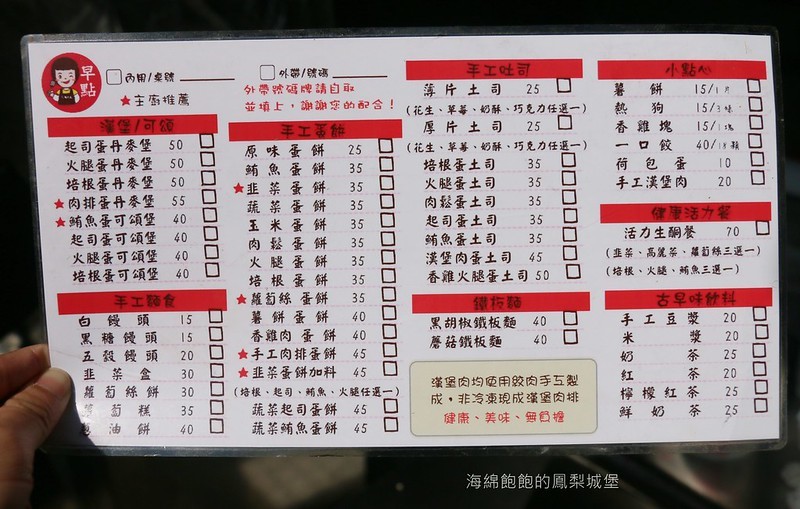 早點
內用/桌號
外帶/號碼
★主廚推薦
外帶號碼牌請自取
並填上,謝謝您的配合!
漢堡/可頌
起司蛋丹麥堡 50
火腿蛋丹麥堡 50
培根蛋丹麥堡 50
★肉排蛋丹麥堡 55
★鮪魚蛋可頌堡 40
起司蛋可頌堡 40
火腿蛋可頌堡 40
培根蛋可頌堡 40
手工麵食
白饅頭 15
黑糖饅頭 15
五穀饅頭 20
韭菜盒 30
蘿蔔絲餅 30
蘿蔔糕 35
蔥油餅 40
手工蛋餅
原味蛋餅 25
鮪魚蛋餅 35
★韭菜蛋餅 35
蔬菜蛋餅 35
玉米蛋餅 35
肉鬆蛋餅 35
火腿蛋餅 35
培根蛋餅 35
★蘿蔔絲蛋餅 35
薯餅蛋餅 40
香雞肉蛋餅 40
★手工肉排蛋餅 45
★韭菜蛋餅加料 45
(培根、起司、鮪魚、火腿任選一)
蔬菜起司蛋餅 45
蔬菜鮪魚蛋餅 45
手工吐司
薄片土司 25
(花生、草莓、奶酥、巧克力任選一)
厚片土司 25
(花生、草莓、奶酥、巧克力任選一)
培根蛋土司 35
火腿蛋土司 35
肉鬆蛋土司 35
起司蛋土司 35
鮪魚蛋土司 35
漢堡肉蛋土司 45
香雞火腿蛋土司 50
鐵板麵
黑胡椒鐵板麵 40
蘑菇鐵板麵 40
漢堡肉均使用絞肉手工製
成,非冷凍現成漢堡肉排
健康、美味、無負擔
小點心
薯餅 15/1片
熱狗 15/3味
香雞塊 15/1塊
一口餃 40/18顆
荷包蛋 10
手工漢堡肉 20
健康活力餐
活力生酮餐 70
(韭菜、高麗菜、蘿蔔絲三選一)
(培根、火腿、鮪魚三選一)
古早味飲料
手工豆漿 20
米漿 20
奶茶 25
紅茶 20
檸檬紅茶 25
鮮奶茶 25
海綿飽飽的鳳梨城堡